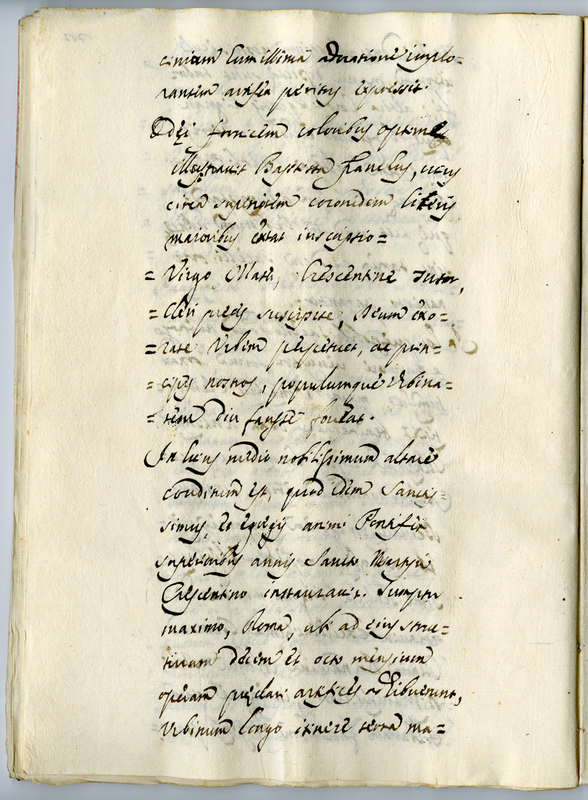 ciniam humillima adoratione implo=
rantem artifex peritus expressit.
Ædis fornicem coloribus optime
illustravit Baptista Francus, cuius
circa superiorem coronidem literis
maioribus extat inscriptio=
= Virgo Mater, Crescentine Tutor,
= Cleri preces suscipite, Deum exo-
= rate Urbem prosperet, ac prin-
= cipes nostros, populumque Urbina-
= tem diu fauste foveat.
In huius medio nobilissimum altare
conditum est, quod idem Sanctis-
simus, et egregii animi Pontifex
superioribus annis Sancto Martyri
Crescentino instauravit. Sumptu
maximo, Romæ, ubi ad eius struc=
turam decem et octo mensium
operam præclari artifices adhibuerunt,
Urbinum longo itinere terra ma=